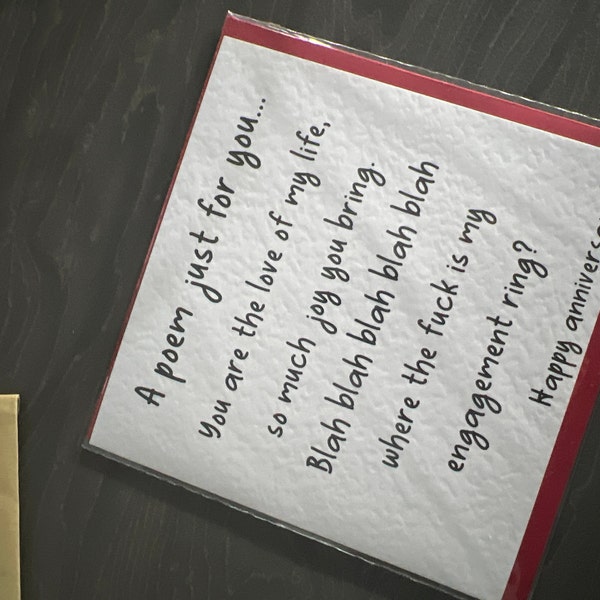 A poem just for you...
You are the love of my life,
so much joy you bring.
Blah blah blah blah blah
where the fuck is my
engagement ring?
Happy